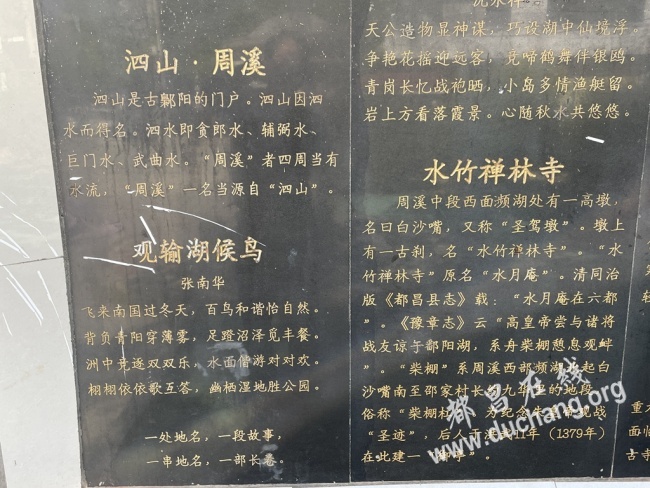 泗山·周溪
泗山是古鄡阳的门户。泗山因泗
水而得名。泗水即贪郎水、辅弼水、
巨门水、武曲水。“周溪”者四周当有
水流，“周溪”一名当源自“泗山”。
观输湖候鸟
张南华
飞来南国过冬天，百鸟和谐怡自然。
背负青阳穿薄雾，足蹬沼泽觅丰餐。
洲中竞逐双双乐，水面偕游对对欢。
栩栩依依歌互答，幽栖湿地胜公园。
一处地名，一段故事，
一串地名，一部长卷。
天公造物显神谋，巧设湖中仙境浮。
争艳花摇迎远客，竞啼鹤舞伴银鸥。
青岗长忆战袍晒，小岛多情渔艇留。
岩上方看落霞景。心随秋水共悠悠。
水竹禅林寺
周溪中段西面濒湖处有一高墩，
名曰白沙嘴，又称“圣驾墩”。墩上
有一古刹，名“水竹禅林寺”。“水
竹禅林寺”原名“水月庵”。清同治
版《都昌县志》载：“水月庵在六都
”。《豫章志》云“高皇帝尝与诸将
战友谅于鄱阳湖，系舟柴棚憩息观衅
”。“柴棚”系周溪西部濒湖北起白
沙嘴南至邵家村长约九华里的地段，
俗称“柴棚村”。为纪念朱
战
“圣迹”，后人于洪武11年（1379年）
在此建一
重
面临
古寺
都昌在线
www.duchang.org